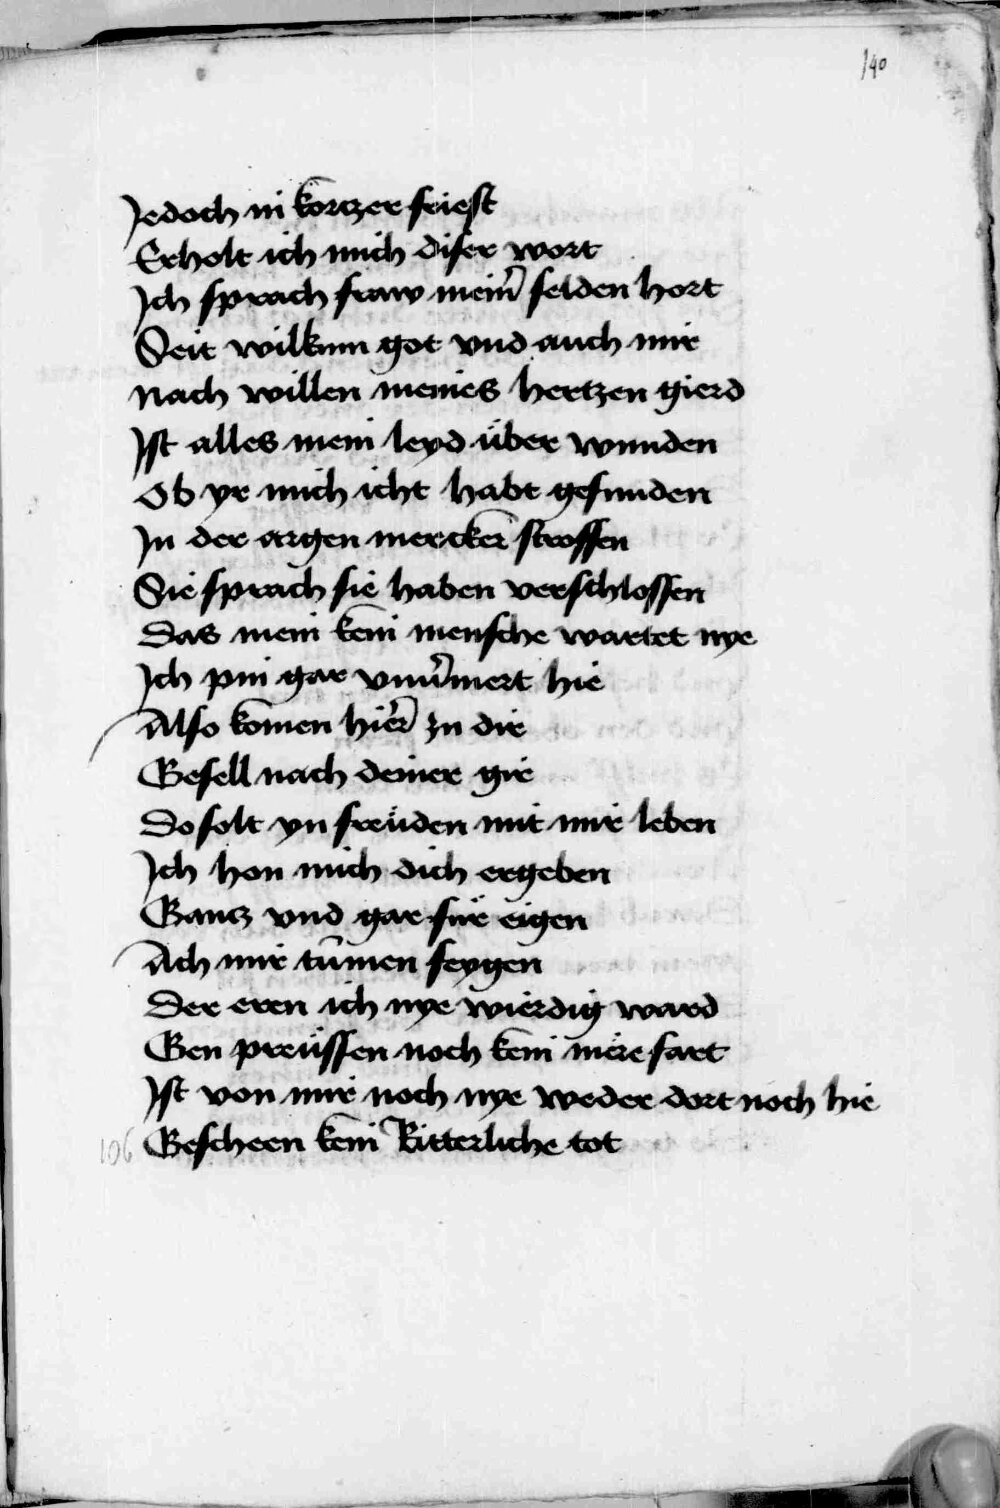 140
Jedoch in kortzer friest
Erholt ich mich diser wort
Ich sprach fraw mein̄ selden hort
Seit wilkum got vnd auch mir
Nach willen meines hertzen gierd
Ist alles mein leyd über wunden
Ob yr mich icht habt gefunden
In der argen mercker strossen
Sie sprach sie haben verschlossen
Das mein kein mensche wartet nye
Ich pin gar hie
Also komen hier zu dir
Gesell nach deiner gir
Do solt yn freüden mit mir leben
Ich hon mich dich ergeben
Gancz vnd gar für eigen
Ach mir tūmen feygen
Der eren ich nye wierdig ward
Gen preüssen noch kein mere fart
Ist von mir noch nye weder dort noch hie
106 Gescheen kein Ritterliche tot